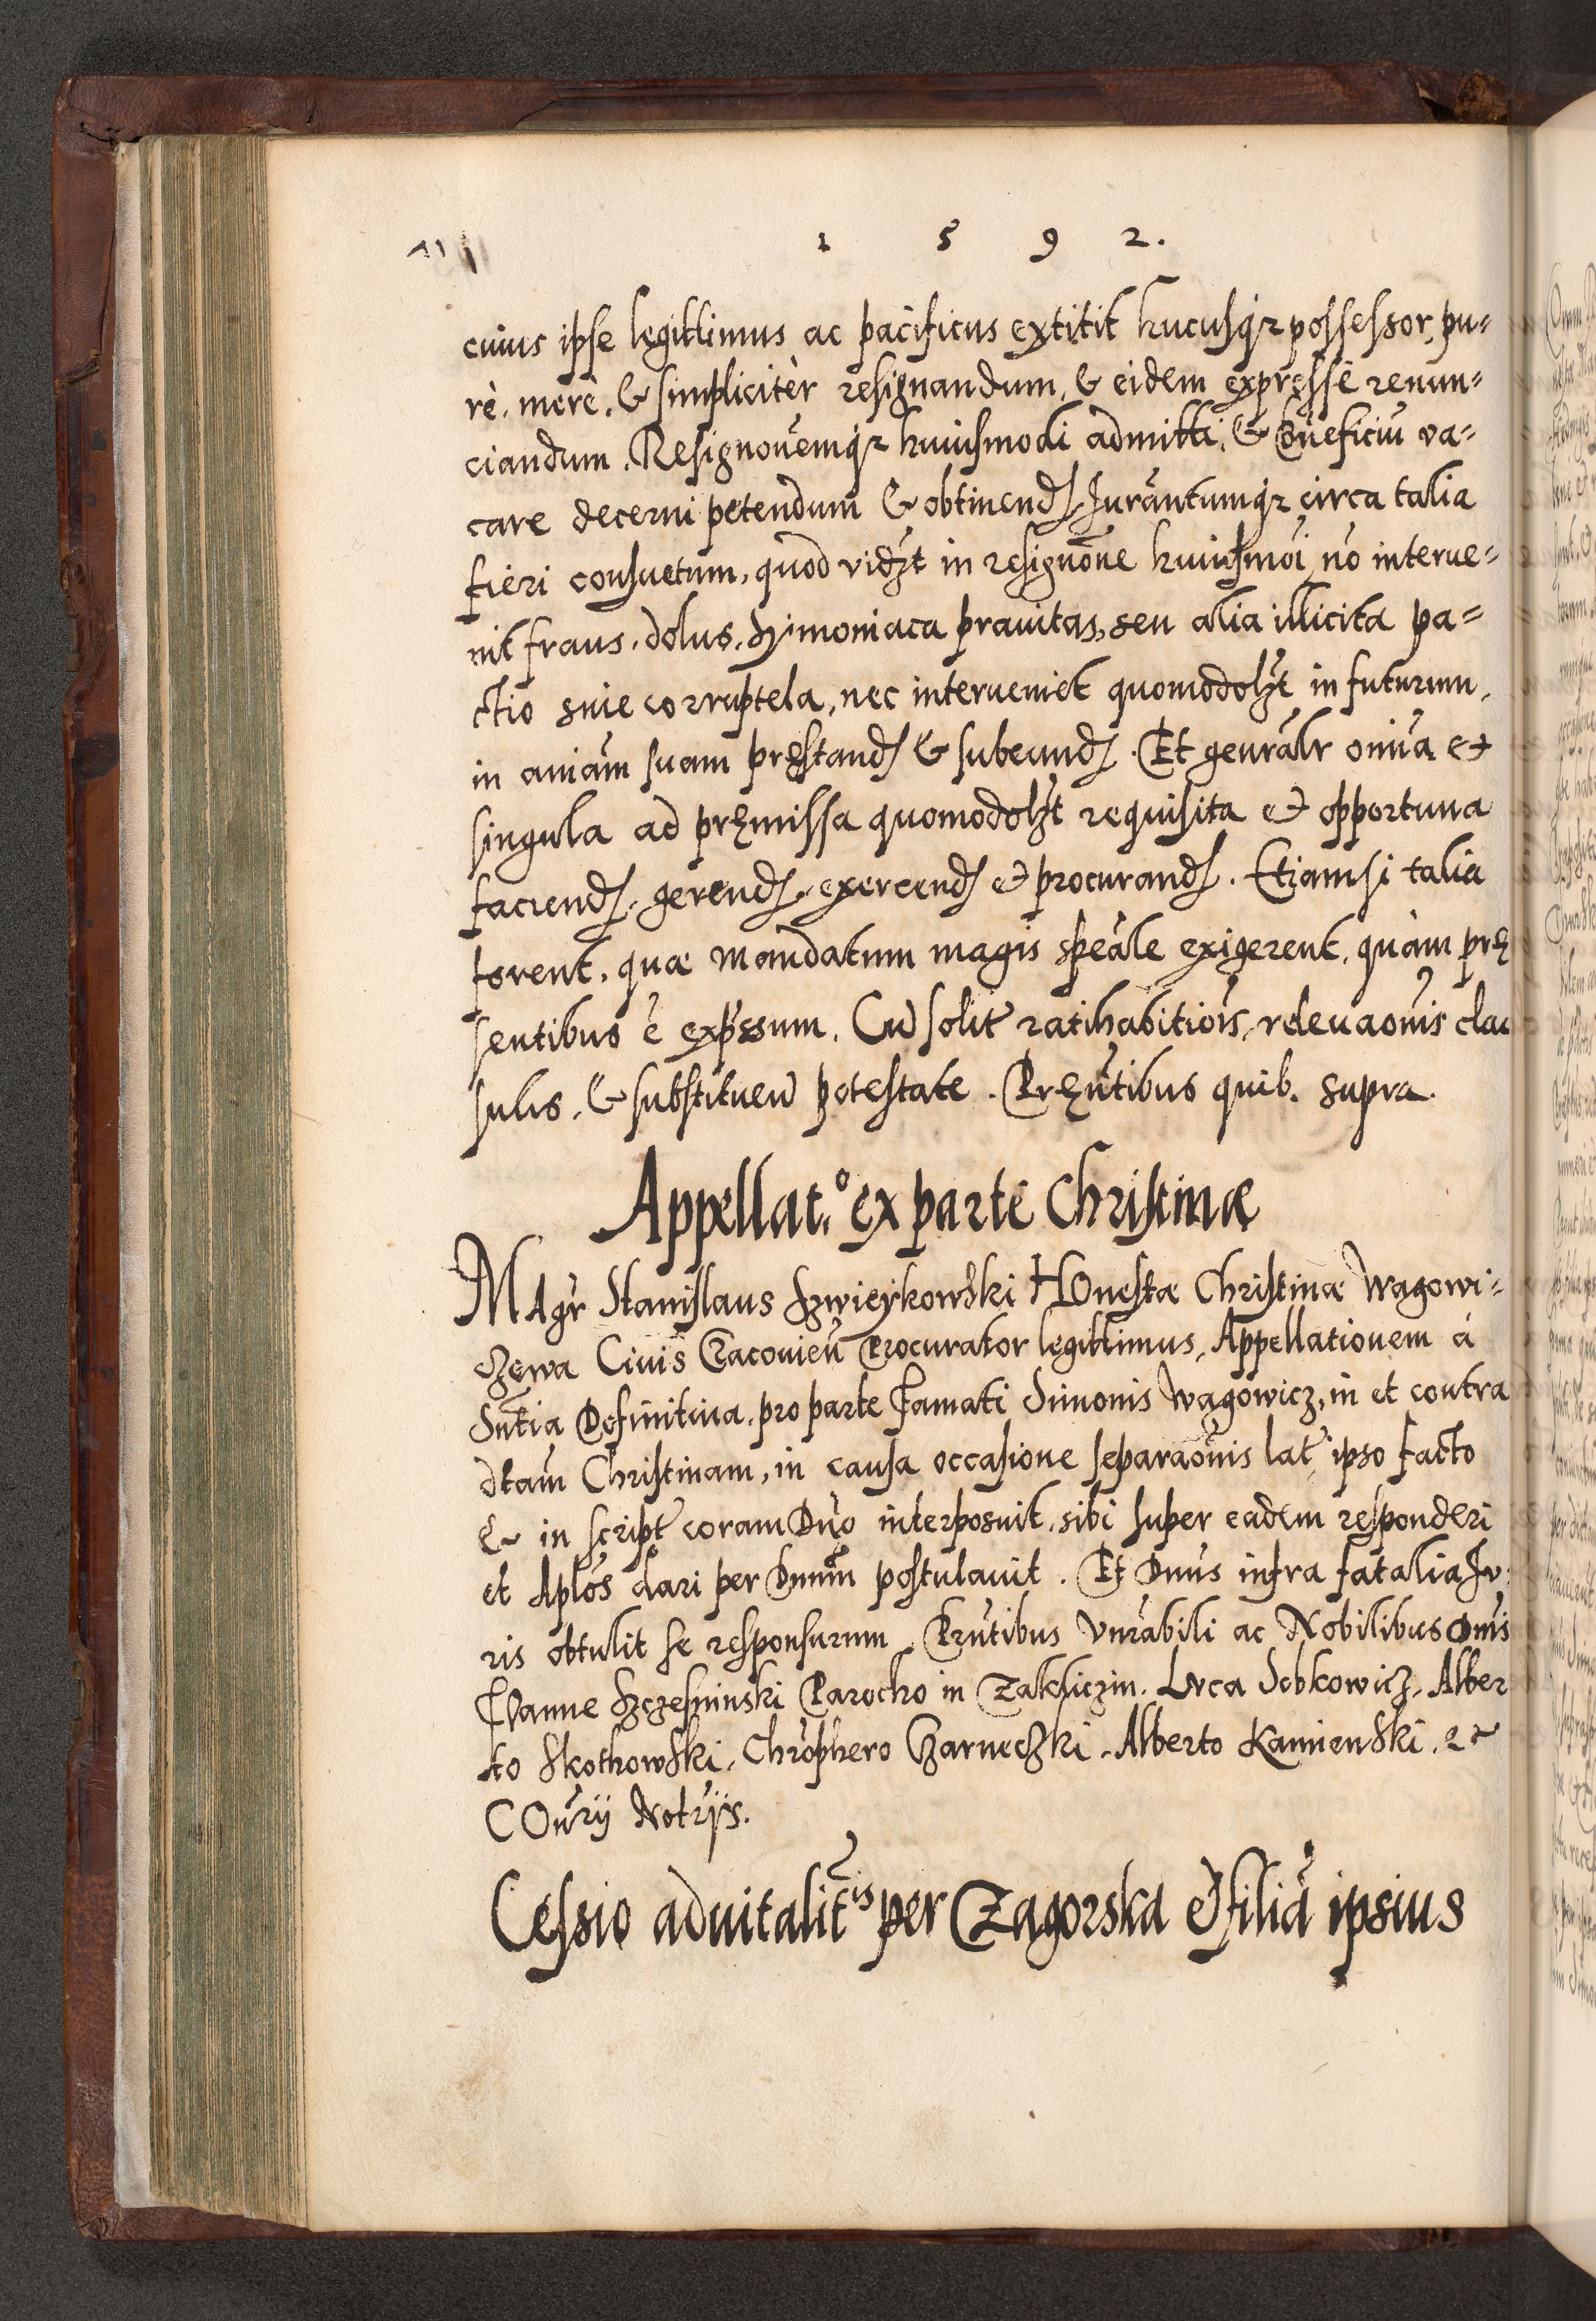 1 5 9 2.
cuius ipse legittimus ac pacificus extitit hucusq́ꝫ possessor, pu=
rè. merè. & simplicitèr resignandum, & eidem expręssè renun=
ciandum. Resignōnemq́ꝫ huiusmodi admitti, & Bn̄eficiū va=
care decerni petendum & obtinend̨. Jurāmtumq́ꝫ circa talia
fieri consuetum, quod vidꝫt in resignōne huiusmōi nō interue=
nit fraus. dolus. Symoniaca prauitas, seu alia illicita pa=
ctio siue corruptela, nec interueniet quomodolꝫt in futurum,
in aniam̄ suam pręstand̨ & subeund̨. Et genrālr om̄ia et
singula ad pręmissa quomodolꝫt requisita et opportuna
faciend̨, gerend̨, exercend̨ et procurand̨. Etiamsi talia
forent, quæ mandatum magis speāle exigerent, quàm prę
sentibus ē exp̄ssum. Cū solit̄ ratihabitiōis, releuaōnis clau
sulis, & substituen̄ potestate. Pręn̄tibus quib. supra.
Appellat.º ex parte Christinæ
MAgr̄ Stanislaus Szwieykowski HOnestæ Christinæ Wagowi=
czewa Ciuis Cracouien̄ Procurator legittimus, Appellationem à
Snt̄ia Definitiua. pro parte Famati Simonis Wagowicz, in et contra
dtam̄ Christinam, in causa occasione separaōnis lat̄ ipso facto
& in script̄ coram Dn̄o interposuit, sibi super eadem responderi
et Aplōs dari per Dnum̄ postulauit. Et Dnūs infra fatalia Ju
ris obtulit se responsurum. Prn̄tibus Vnrābili ac Nobilibus Dnis
JOanne Szczesninski Parocho in Zakliczin. Luca Sobkowicz, Alber
to Skothowski, Chrōphero Czarneczki, Alberto Kamienski, et
COn̄rij Notrijs.
Cessio aduitalit̄is per Zagorska & filiā ipsius